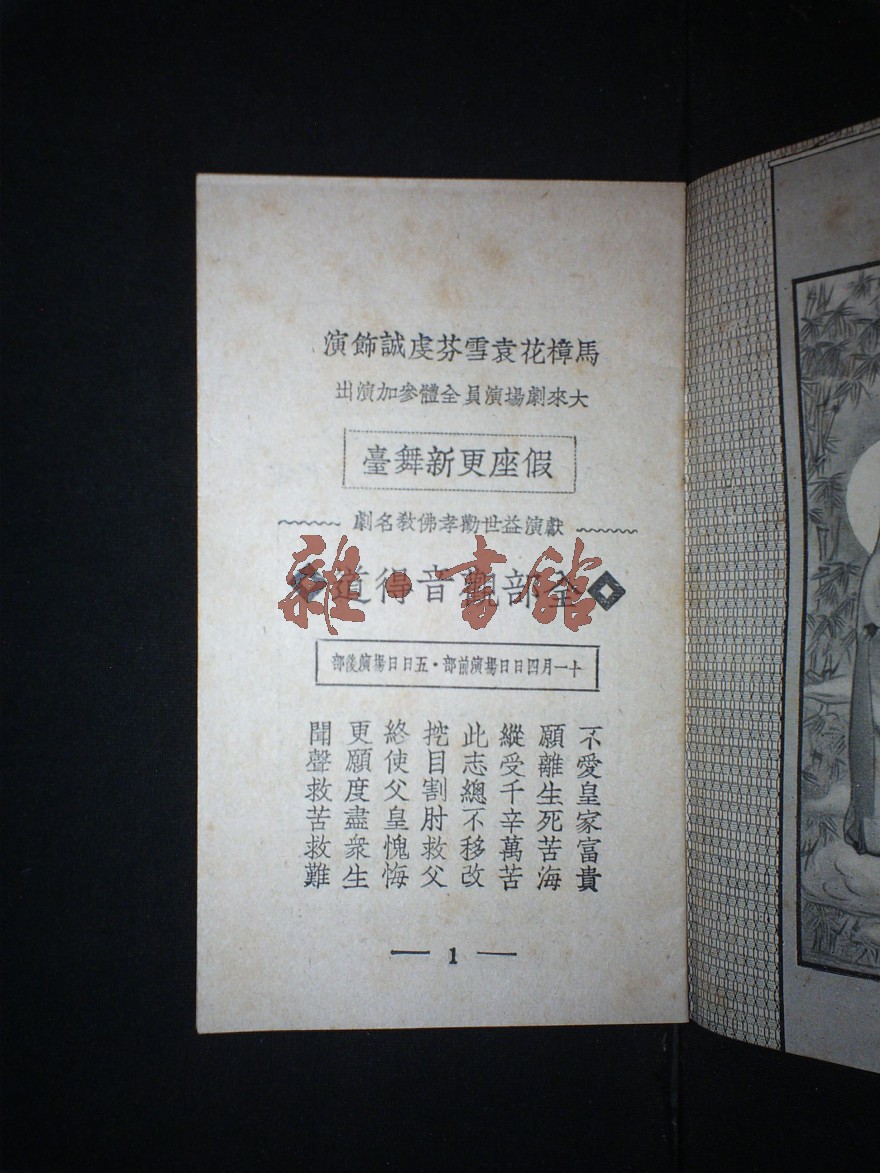 馬樟花袁雪芬虔誠飾演
大來劇場演員全體參加演出
假座更新舞臺
獻演益世勸孝佛教名劇
全部觀音得道
十一月四日日場演前部·五日日場演後部
不愛皇家富貴
願離生死苦海
縱受千辛萬苦
此志總不移改
挖目割肘救父
終使父皇愧悔
更願度盡衆生
聞聲救苦救難
— 1 —
雜·書館